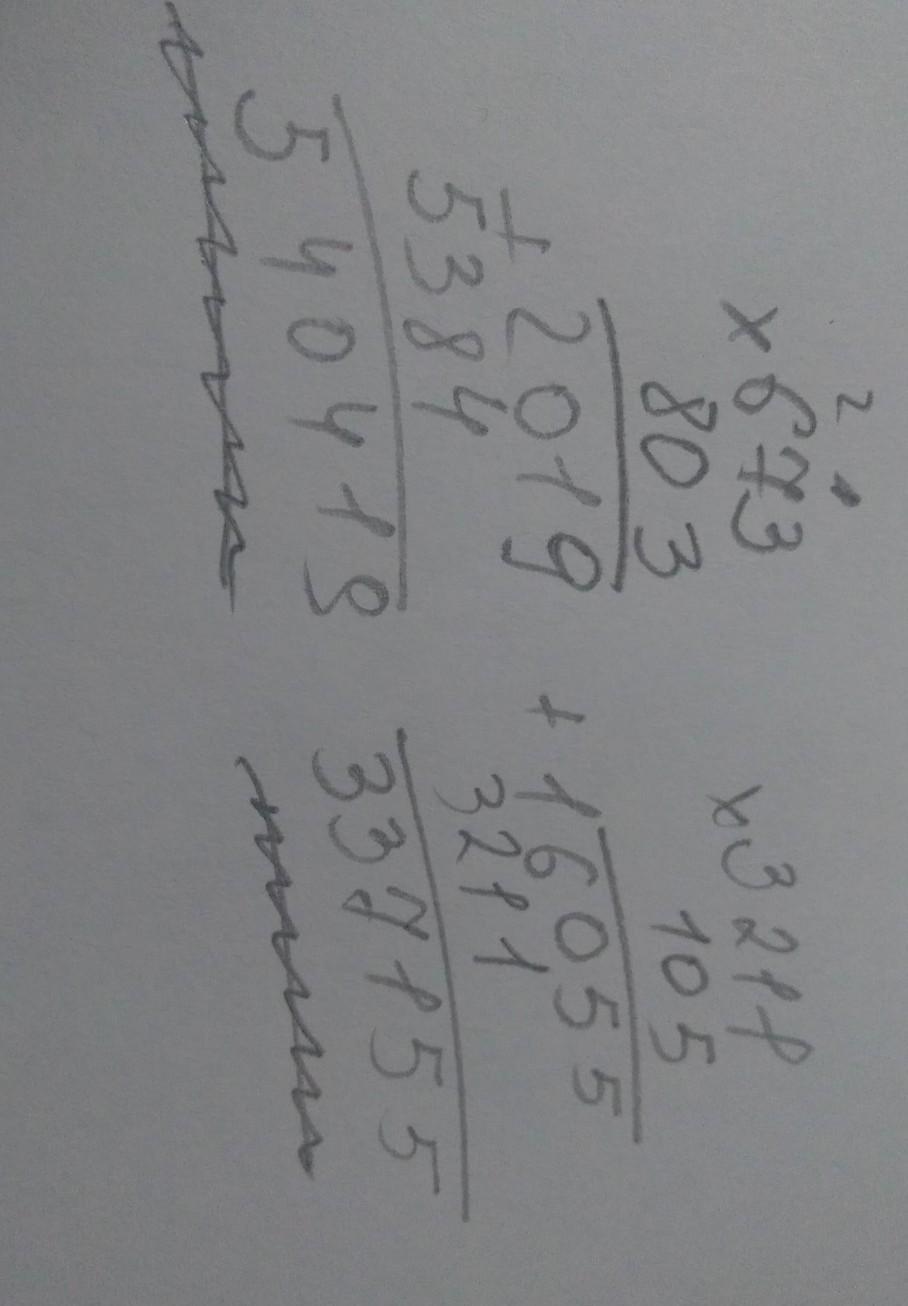 2
×673
803
2019
+
5384
540419
×3211
105
+16055
3211
337155